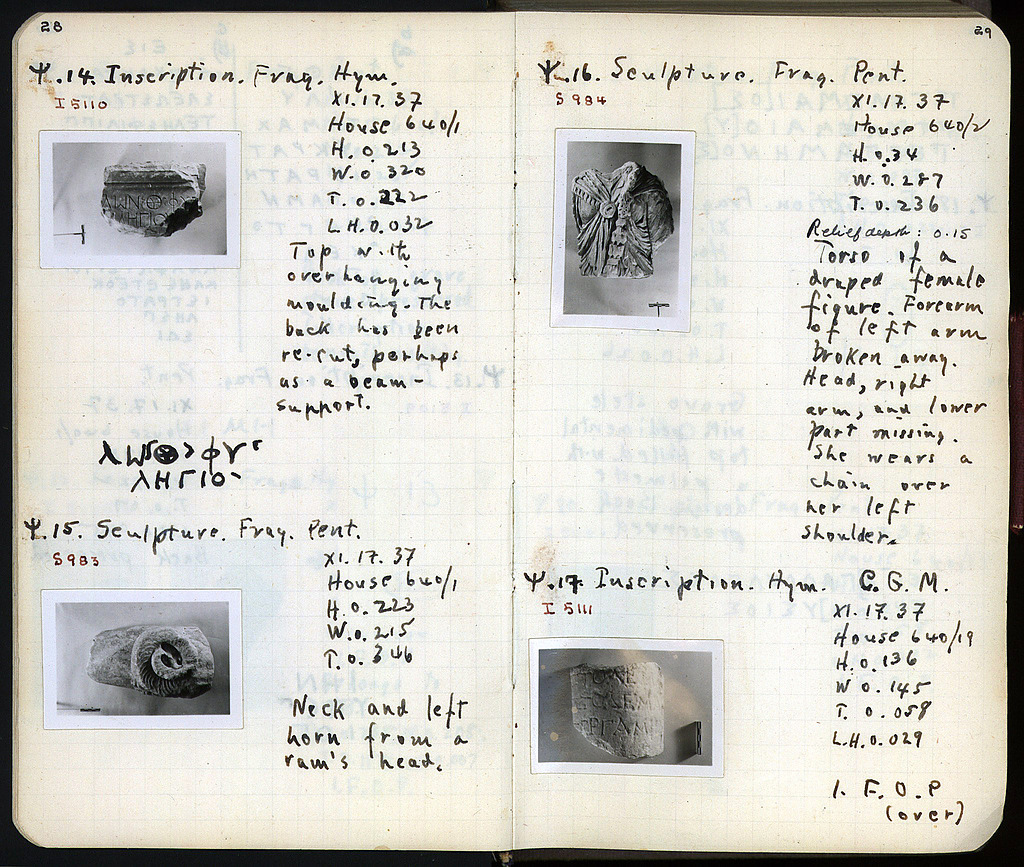 28
Ψ.14. Inscription. Frag. Hym.
I 5110
XI.17.37
House 640/1
H.0.213
W.0.320
T.0.222
L.H.0.032
Top with
overhanging
moulding. The
back has been
re-cut, perhaps
as a beam-
support.
ΛΗΓΙΟ
Ψ.15. Sculpture. Frag. Pent.
S 983
XI.17.37
House 640/1
H.0.223
W.0.215
T.0.346
Neck and left
horn from a
ram's head.
29
Ψ.16. Sculpture. Frag. Pent.
S 984
XI.17.37
House 640/2
H.0.34
W.0.287
T.0.236
Relief depth: 0.15
Torso of a
draped female
figure. Forearm
of left arm
broken away.
Head, right
arm, and lower
part missing.
She wears a
chain over
her left
shoulder.
Ψ.17. Inscription. Hym. C.G.M.
I 5111
XI.17.37
House 640/19
H.0.136
W 0.145
T. 0.058
L.H.0.029
1. F.O.P
(over)